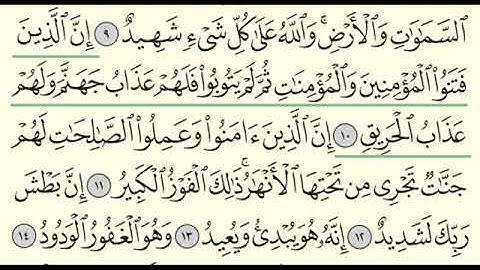 ٱلسَّمَٰوَٰتِ وَٱلْأَرْضِ ۚ وَٱللَّهُ عَلَىٰ كُلِّ شَىْءٍ شَهِيدٌ ٩ إِنَّ ٱلَّذِينَ
فَتَنُوا۟ ٱلْمُؤْمِنِينَ وَٱلْمُؤْمِنَٰتِ ثُمَّ لَمْ يَتُوبُوا۟ فَلَهُمْ عَذَابُ جَهَنَّمَ وَلَهُمْ
عَذَابُ ٱلْحَرِيقِ ١٠ إِنَّ ٱلَّذِينَ ءَامَنُوا۟ وَعَمِلُوا۟ ٱلصَّٰلِحَٰتِ لَهُمْ
جَنَّٰتٌ تَجْرِى مِن تَحْتِهَا ٱلْأَنْهَٰرُ ۚ ذَٰلِكَ ٱلْفَوْزُ ٱلْكَبِيرُ ١١ إِنَّ بَطْشَ
رَبِّكَ لَشَدِيدٌ ١٢ إِنَّهُۥ هُوَ يُبْدِئُ وَيُعِيدُ ١٣ وَهُوَ ٱلْغَفُورُ ٱلْوَدُودُ ١٤